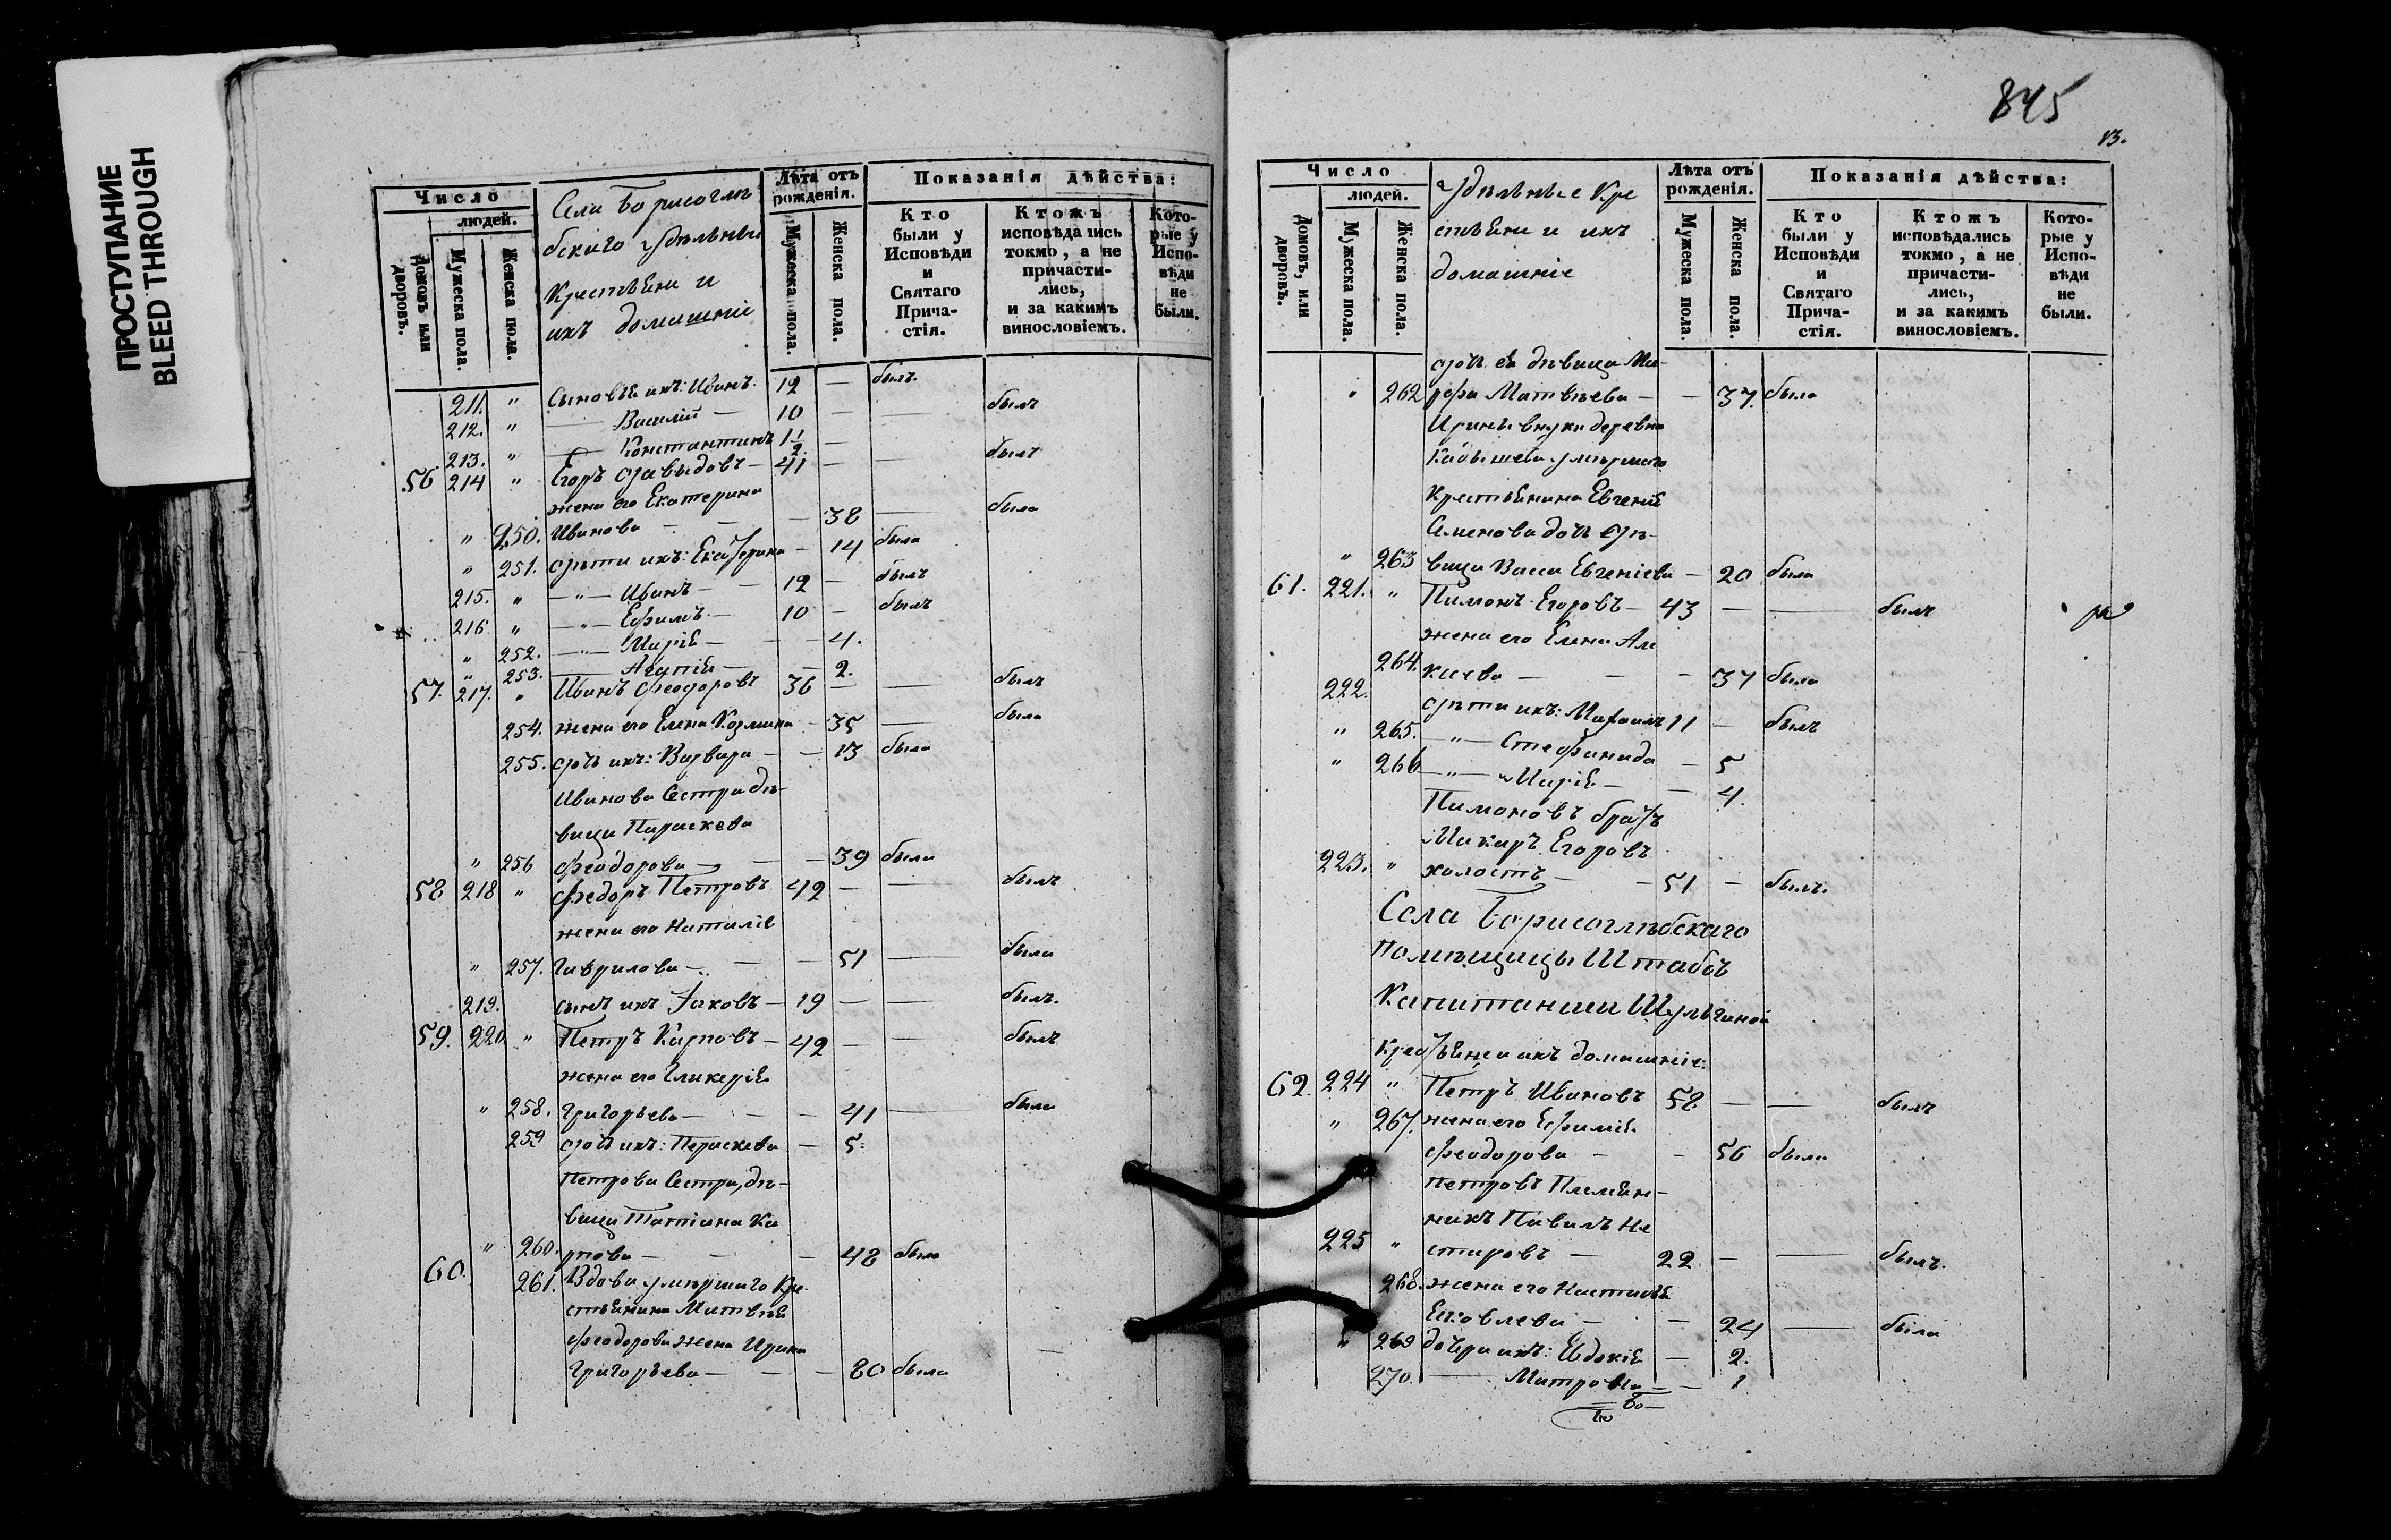 ПРОСТУПАНИЕ
BLEED THROUGH
Число
людей.
Домовъ или дворовъ.
Мужеска пола.
Женска пола.
Села Борисоглѣ
бскаго Удѣльные
Крестьяне и
ихъ домашніе
Лѣта отъ рожденія.
Мужеска пола.
Женска пола.
Показанія дѣйства:
Кто были у Исповѣди и Святаго Прича-стія.
Ктожъ исповѣдались токмо, а не причасти-лись, и за какимъ винословіемъ.
Кото-рые у Испо-вѣди не были.
211. " Сыновья ихъ: Иванъ 12 — былъ.
212. " — Василій — 10 — — былъ
213. " — Константинъ 1 1/2 —
56 214 " Егоръ Давыдовъ — 41 — — былъ
жена его Екатерина
" 250. Иванова — — — 38 — была
" 251. Дѣти ихъ: Екатерина — 14 была
215. " — " — Иванъ — 12 — былъ
216 " — " — Ефимъ — 10 — былъ
" 252. — " — Марія — — 4.
" 253. — Агапія — — 2.
57. 217. " Иванъ Феодоровъ 36 — — былъ
254. жена его Елена Козмина — 35 — была
255. дочь ихъ: Варвара — — 13 была
Иванова Сестра дѣ-
вица Параскева
" 256 Феодорова — — — 39 была
58 218 " Федоръ Петровъ 42 — — былъ
жена его Наталія
" 257. Гаврилова — — — 51 — была
219. сынъ ихъ Іаковъ — 19 — — былъ.
59. 220 " Петръ Карповъ — 42 — — былъ
жена его Гликерія
" 258. Григорьева — — — 41 — была
259 дочь ихъ: Параскева — 5.
Петрова Сестра, дѣ-
вица Татіана Ка
" 260. рпова — — — 48 была
60. 261. Вдова умершаго Кре-
стьянина Матвѣя
Феодорова жена Ирина
Григорьева — — — 80 была
845
13.
Число
людей.
Домовъ, или дворовъ.
Мужеска пола.
Женска пола.
Удѣльные Кре
стьяне и ихъ
домашніе
Лѣта отъ рожденія.
Мужеска пола.
Женска пола.
Показанія дѣйства:
Кто были у Исповѣди и Святаго Прича-стія.
Ктожъ исповѣдались токмо, а не причасти-лись, и за какимъ винословіемъ.
Кото-рые у Испо-вѣди не были.
дочь ея дѣвица Ма-
" 262 рфа Матвѣева — — 37. была
Ирины внука деревни
умершаго
Крестьянина Евгенія
Семенова дочь дѣ-
" 263 вица Васса Евгеніева — 20 была
61. 221. " Пимонъ Егоровъ — 43 — — былъ
жена его Елена Але
264. ксѣева — — — 37 была
222. Дѣти ихъ: Михаилъ 11 — былъ
" 265. — " — Стефанида — 5
" 266 — " — Марія — — 4.
Пимоновъ братъ
Макаръ Егоровъ
223. " холостъ — — 51 — былъ.
Села Борисоглѣбскаго
Помѣщицы Штабсъ
Капитанши Шульгиной
Крестьяне и ихъ домашніе:
62. 224 " Петръ Ивановъ 58 — — былъ
" 267. жена его Ефимія
Феодорова — — 56 была
Петровъ Племян-
никъ Павелъ Не
225 " стеровъ — 22 — — былъ.
268. жена его Настасія
Яковлева — — 24 — была
" 269 дочери ихъ: Евдокія — 2.
270. — Матрона — — 1